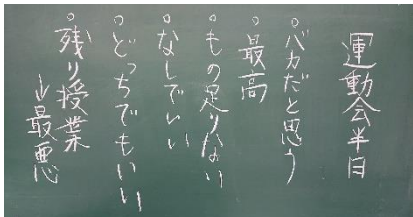 運動会半日
。バカだと思う
。最高
。もの足りない
。なしでいい
。どっちでもいい
。残り授業
→最悪